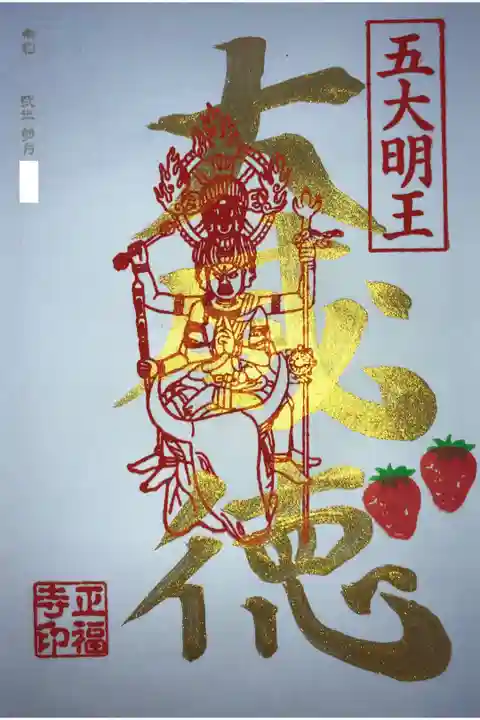 五大明王
大威徳
正福
寺印